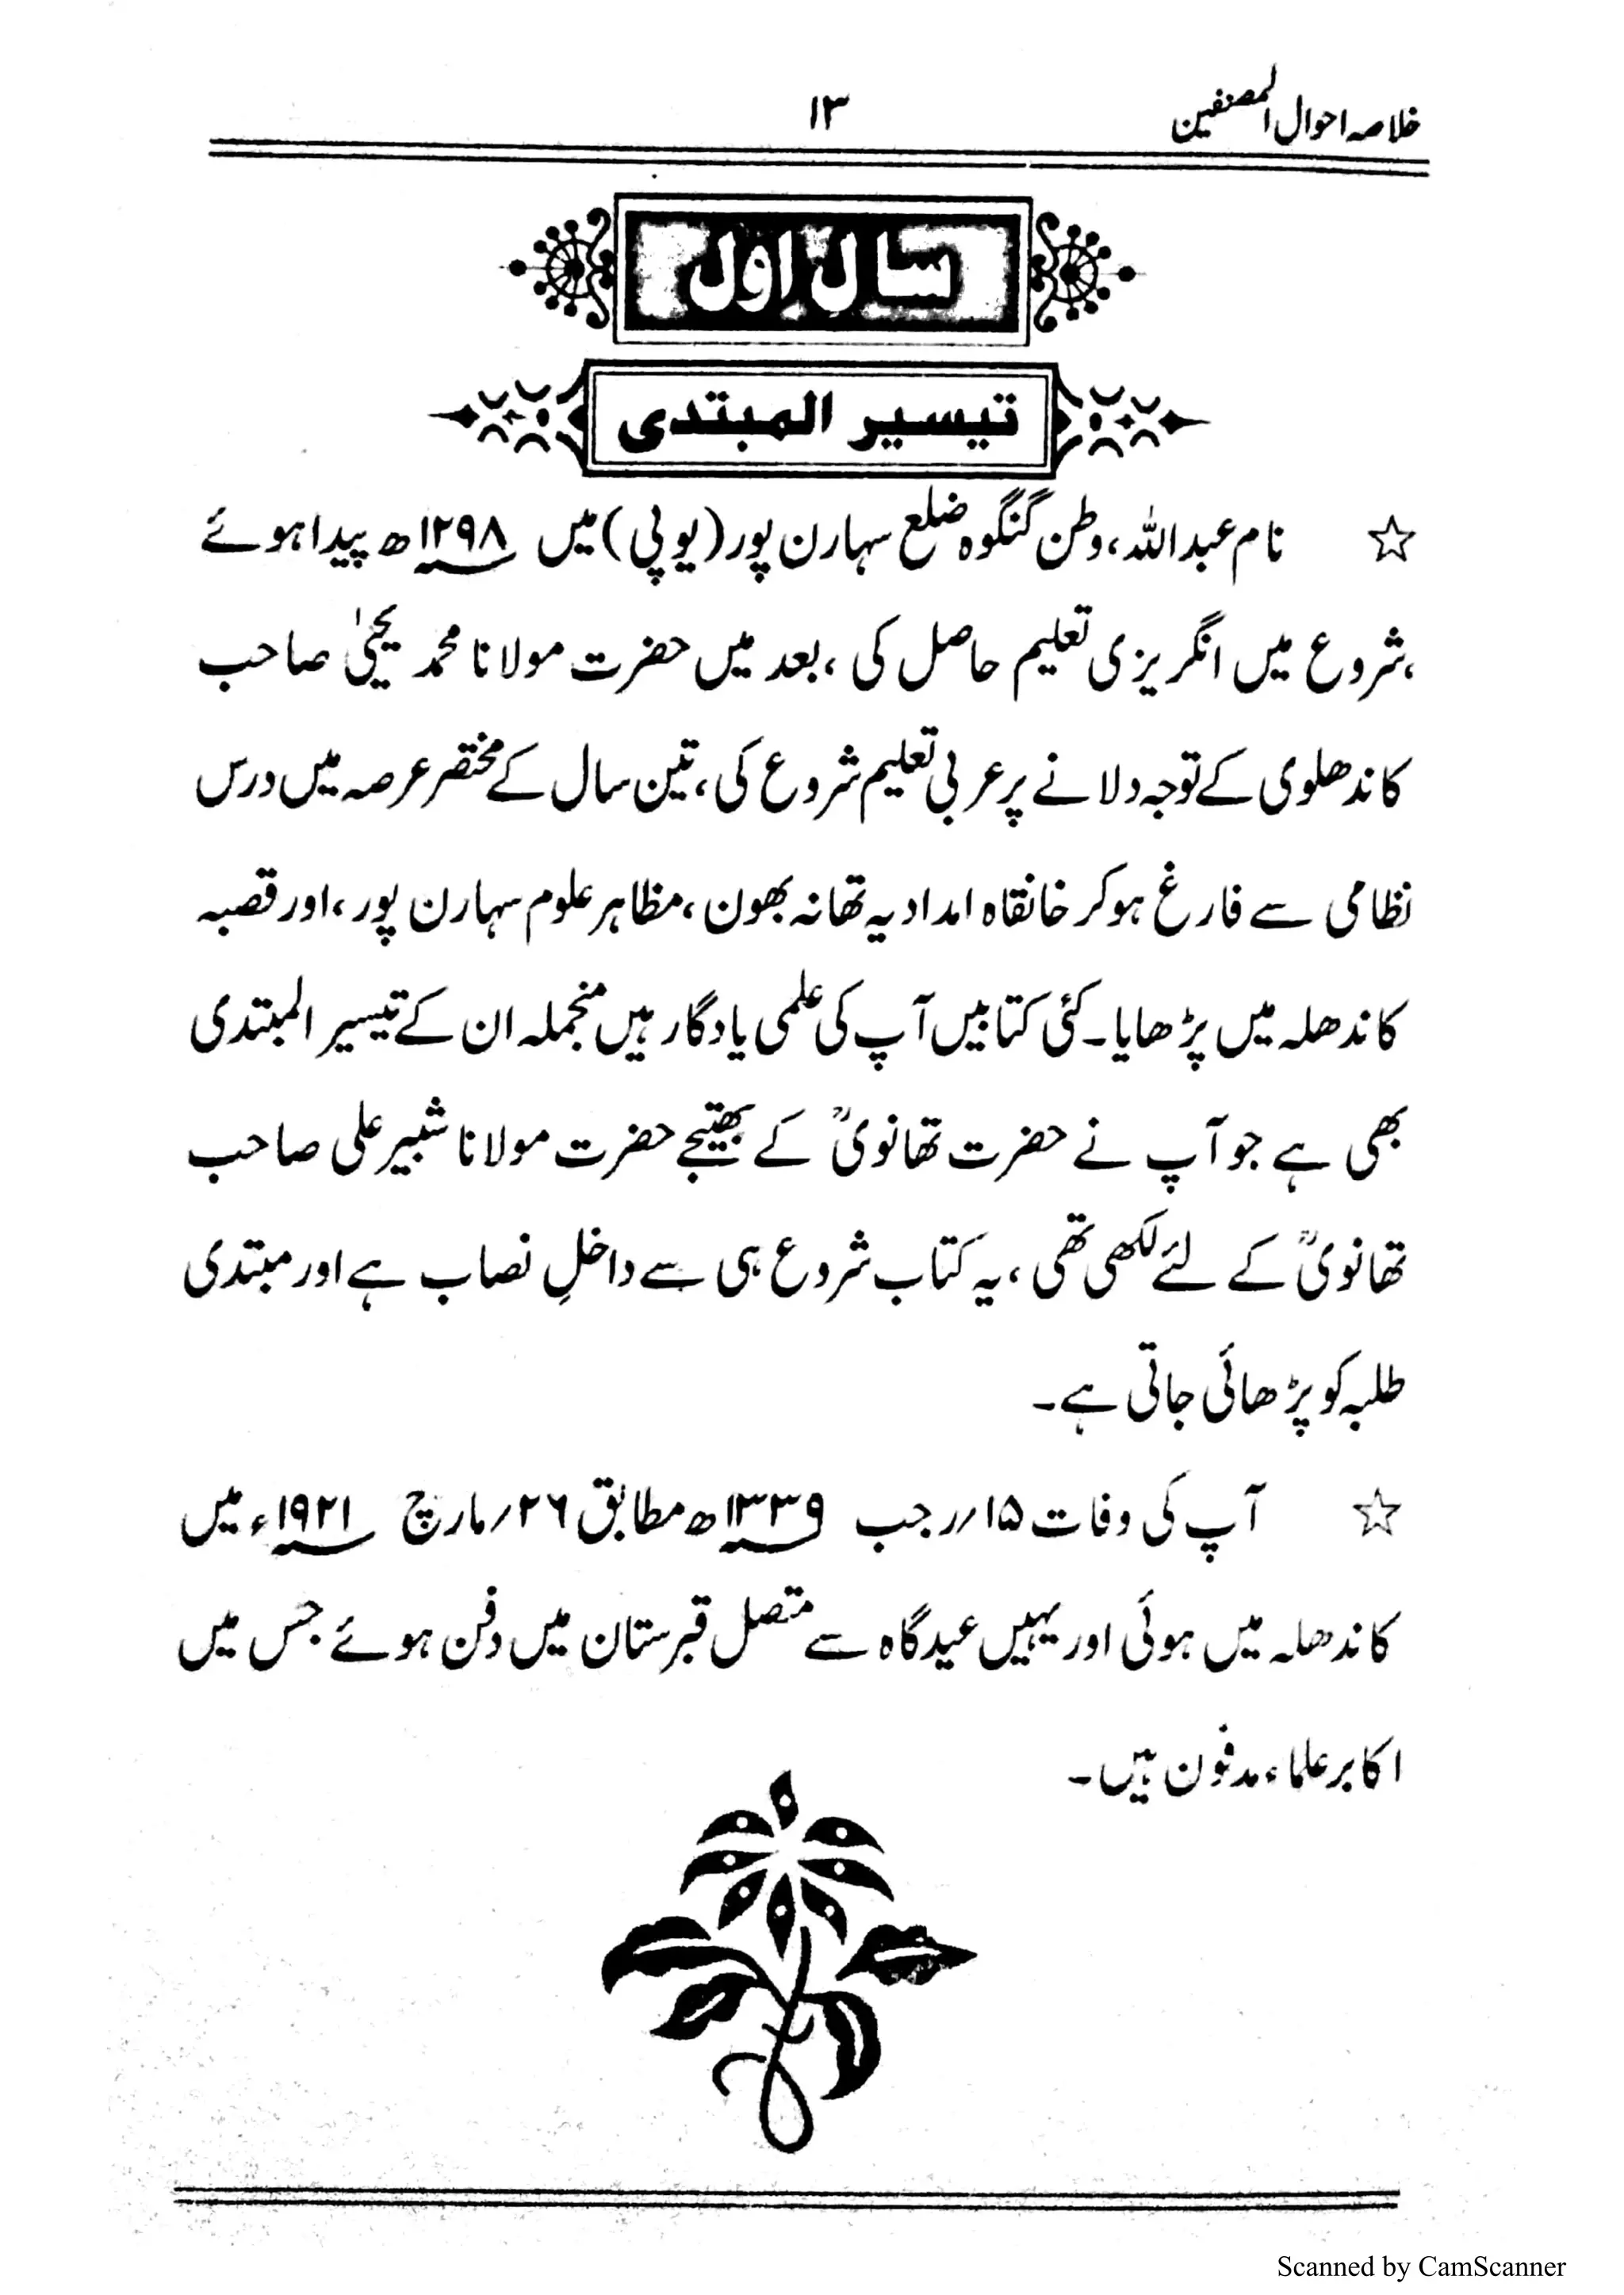 خلاصہ احوال المصنفین ۱۳
سالِ اول
تیسیر المبتدی
☆ نام عبداللہ، وطن گنگوہ ضلع سہارن پور (یوپی) میں ۱۲۹۸ھ پیدا ہوئے
،شروع میں انگریزی تعلیم حاصل کی، بعد میں حضرت مولانا محمد یحییٰ صاحب
کاندھلوی کے توجہ دلانے پر عربی تعلیم شروع کی، تین سال کے مختصر عرصہ میں درس
نظامی سے فارغ ہوکر خانقاہ امدادیہ تھانہ بھون، مظاہر علوم سہارن پور، اور قصبہ
کاندھلہ میں پڑھایا۔ کئی کتابیں آپ کی علمی یادگار ہیں منجملہ ان کے تیسیر المبتدی
بھی ہے جو آپ نے حضرت تھانویؒ کے بھتیجے حضرت مولانا شبیر علی صاحب
تھانویؒ کے لئے لکھی تھی، یہ کتاب شروع ہی سے داخلِ نصاب ہے اور مبتدی
طلبہ کو پڑھائی جاتی ہے۔
☆ آپ کی وفات ۱۵/رجب ۱۳۳۹ھ مطابق ۲۶/مارچ ۱۹۲۱ء میں
کاندھلہ میں ہوئی اور یہیں عیدگاہ سے متصل قبرستان میں دفن ہوئے جس میں
اکابر علماء مدفون ہیں۔
Scanned by CamScanner